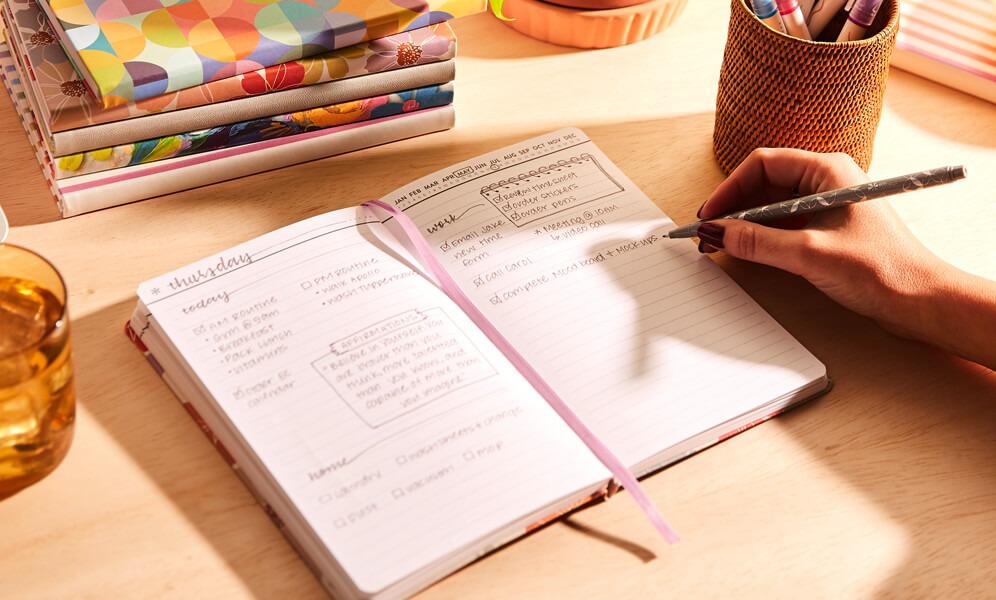 * thursday
today
AM ROUTINE
• Gym @ 9am
• Breakfast
• Pack Lunch
• Vitamins
Order EC
calendar
PM ROUTINE
• Walk Apollo
• Wash Tupperware
AFFIRMATIONS
"Believe in yourself. You
are braver than you
think, more talented
than you know, and
capable of more than
you imagine."
home
Laundry
Wash sheets + change
Dust
Vacuum
Mop
JAN FEB MAR APR MAY JUN JUL AUG SEP OCT NOV DEC
work
Review time sheet
Order stickers
Order pens
Email Jake
new time
form
* Meeting @ 10am
↳ video call
Call Carol
Complete Mood board + Mock-ups